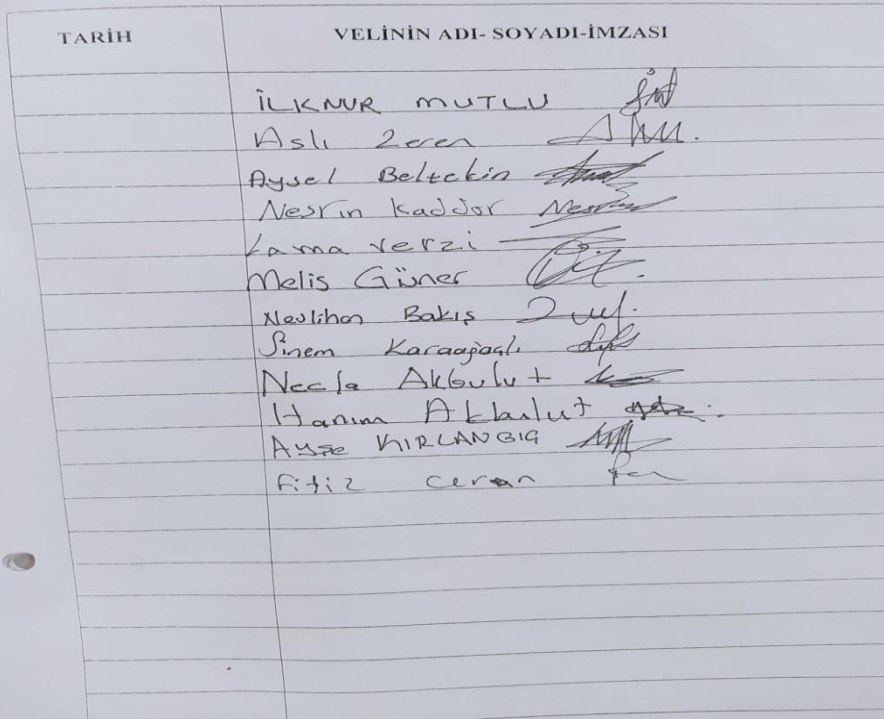 TARİH
VELİNİN ADI- SOYADI-İMZASI
İLKNUR MUTLU
Aslı Zeren
Aysel Beltekin
Nesrin Kaddor
Lama verzi
Melis Güner
Neslihan Bakış
Sinem Karaağaçlı
Necla Akbulut
Hanım Akbulut
Ayşe KIRLANGIÇ
Ceran